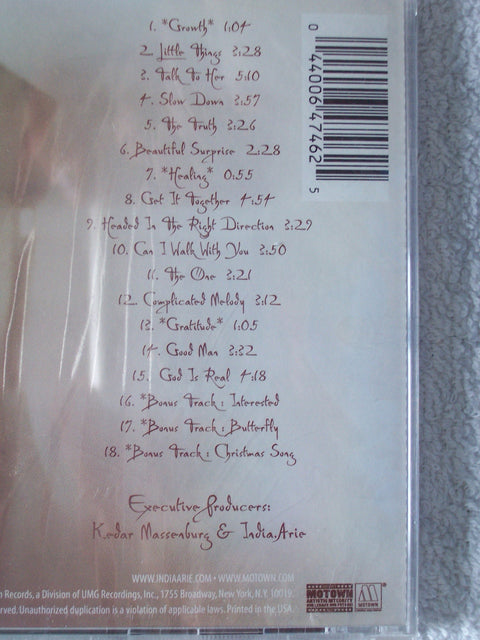 1. *Growth* 1:04
2. Little Things 3:28
3. Talk To Her 5:10
4. Slow Down 3:57
5. The Truth 3:26
6. Beautiful Surprise 2:28
7. *Healing* 0:55
8. Get It Together 4:54
9. Headed In The Right Direction 3:29
10. Can I Walk With You 3:50
11. The One 3:21
12. Complicated Melody 3:12
13. *Gratitude* 1:05
14. Good Man 3:32
15. God Is Real 4:18
16. *Bonus Track: Interested
17. *Bonus Track: Butterfly
18. *Bonus Track: Christmas Song
0 44006 47462 5
Executive Producers:
Kedar Massenburg & India.Arie
WWW.INDIAARIE.COM • WWW.MOTOWN.COM
n Records, a Division of UMG Recordings, Inc., 1755 Broadway, New York, N.Y. 10019.
rved. Unauthorized duplication is a violation of applicable laws. Printed in the USA.
MOTOWN
MOTOWN